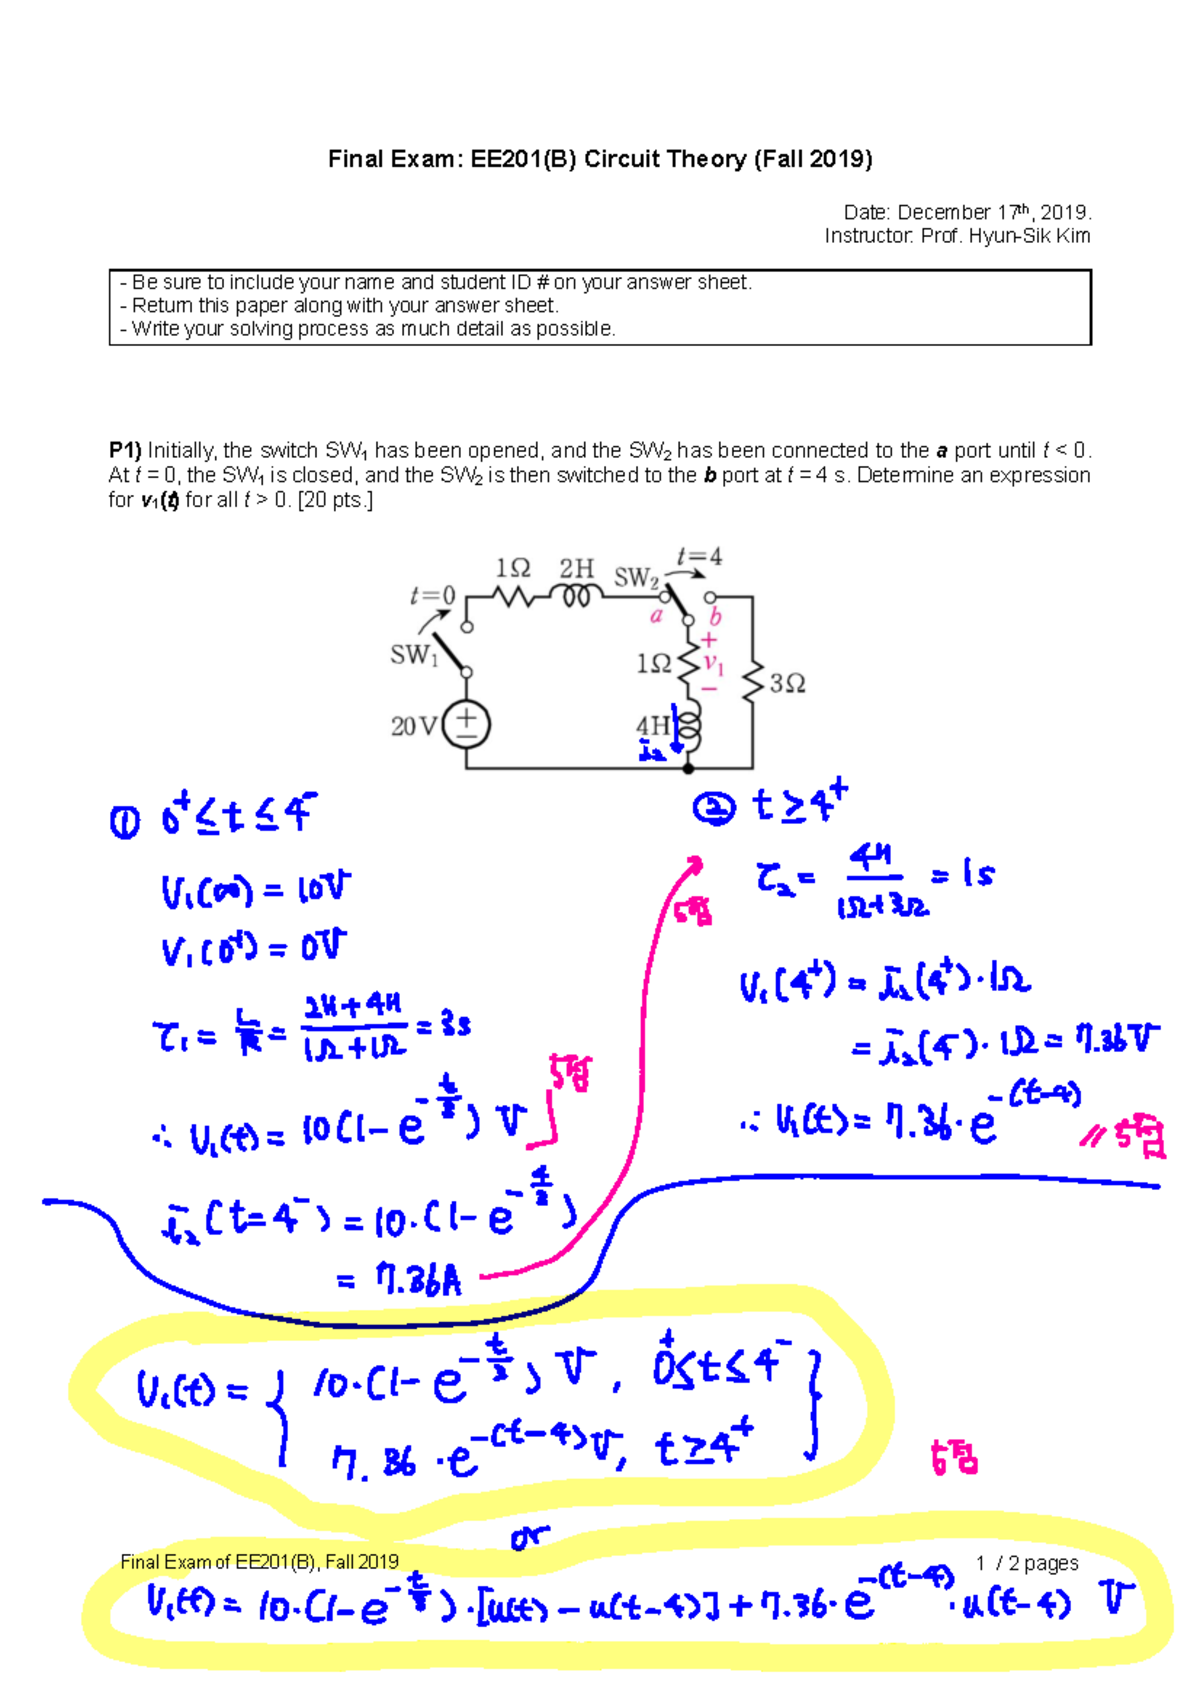 Final Exam: EE201(B) Circuit Theory (Fall 2019)
Date: December 17th, 2019.
Instructor: Prof. Hyun-Sik Kim
- Be sure to include your name and student ID # on your answer sheet.
- Return this paper along with your answer sheet.
- Write your solving process as much detail as possible.
P1) Initially, the switch SW1 has been opened, and the SW2 has been connected to the a port until t < 0.
At t = 0, the SW1 is closed, and the SW2 is then switched to the b port at t = 4 s. Determine an expression
for v1(t) for all t > 0. [20 pts.]
t=4
1Ω 2H SW2
t=0
a b
SW1
+
1Ω v1
−
3Ω
20V + −
4H
i2
① 0⁺ ≤ t ≤ 4⁻
V1(∞) = 10V
V1(0⁺) = 0V
τ1 = L/R = (2H+4H)/(1Ω+1Ω) = 3s
5점
∴ V1(t) = 10(1-e^(-t/3)) V
i2(t=4⁻) = 10·(1-e^(-4/3))
= 7.36A
② t ≥ 4⁺
τ2 = 4H/(1Ω+3Ω) = 1s
5점
V1(4⁺) = i2(4⁺)·1Ω
= i2(4⁻)·1Ω = 7.36V
∴ V1(t) = 7.36·e^(-(t-4)) // 5점
V1(t) = { 10·(1-e^(-t/3)) V, 0⁺≤t≤4⁻
7.36·e^(-(t-4)) V, t≥4⁺ }
5점
or
Final Exam of EE201(B), Fall 2019 1 / 2 pages
V1(t) = 10·(1-e^(-t/3))·[u(t)-u(t-4)]+7.36·e^(-(t-4))·u(t-4) V